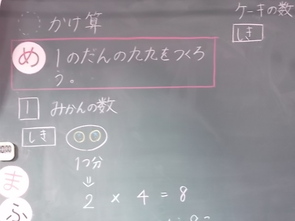 かけ算
め
1のだんの九九をつくろ
う。
1 みかんの数
しき
1つ分
2 × 4 = 8
ケーキの数
しき
ま
ふ